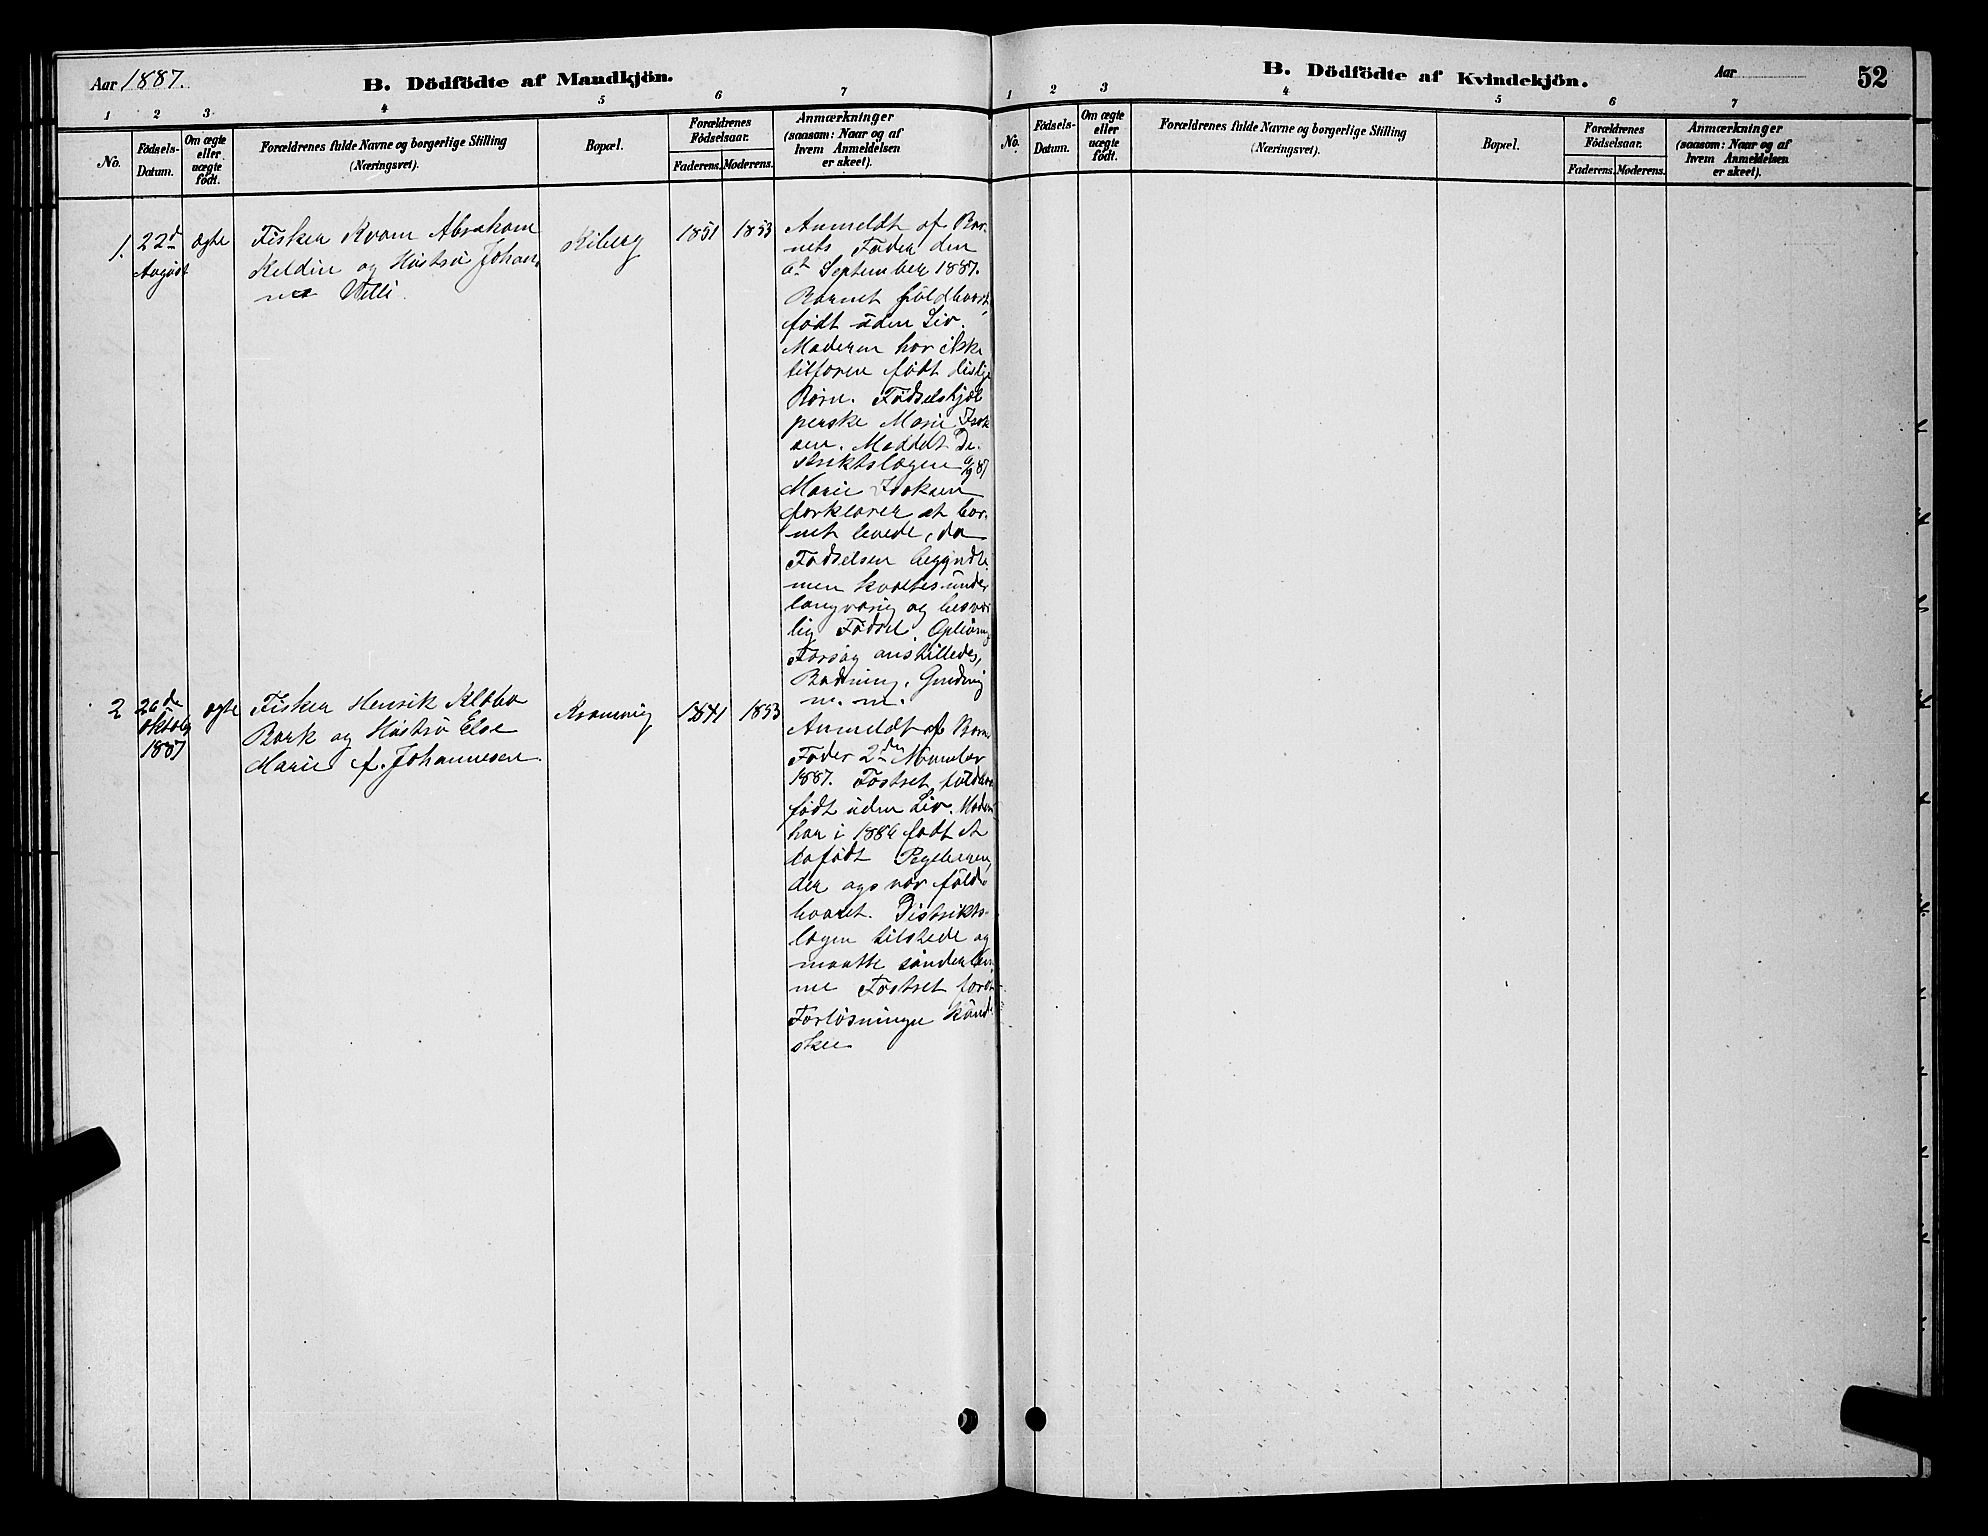 Aar 1887.
B. Dödfödte af Mandkjön.
1 2 3 4 5 6 7
No.
Födsels-
Datum.
Om ægte
eller
uægte
födt.
Forældrenes fulde Navne og borgerlige Stilling
(Næringsvei).
Bopæl.
Forældrenes
Födselsaar.
Faderens.
Moderens.
Anmærkninger
(saasom: Naar og af
hvem Anmeldelsen
er skeet).
1.
22d
August
ægte
Fisker Kvam Abraham
Keldin og Hustru Johan
na
Kiberg
1851
1853
Anmeldt af Bar
nets Fader den
6t September 1887.
Barnet fuldbaaret,
født uden Liv.
Moderen har ikke
tilforn født
Børn. Fødselshjæl
perske Marie Isak
sen. Meddelt Di
striktslægen 6/9 87
Marie Isaksen
forklarer at bar
net levede, da
Fødselsen begyndte
men kvaltes under
langvarig og besvær
lig Fødsel. Oplivnings
Forsøg anstilledes,
Badning, Gnidning
m. m.
2
26de
Oktober
1887
ægte
Fisker Henrik
Bark og Hustru Else
Marie f. Johannesen.
1841
1853
Anmeldt af Barnets
Fader 2den November
1887. Fostret fuldbaaret
født uden Liv. Moderen
har i 1886 født et
dødfødt Pigebarn,
der ogs var fuld
baaret. Distrikts-
lægen tilstede og
maatte sønderlem
me Fostret førend
Forløsningen kunde
skee
B. Dödfödte af Kvindekjön.
Aar
52
1 2 3 4 5 6 7
No.
Födsels-
Datum.
Om ægte
eller
uægte
födt.
Forældrenes fulde Navne og borgerlige Stilling
(Næringsvei).
Bopæl.
Forældrenes
Födselsaar.
Faderens.
Moderens.
Anmærkninger
(saasom: Naar og af
hvem Anmeldelsen
er skeet).